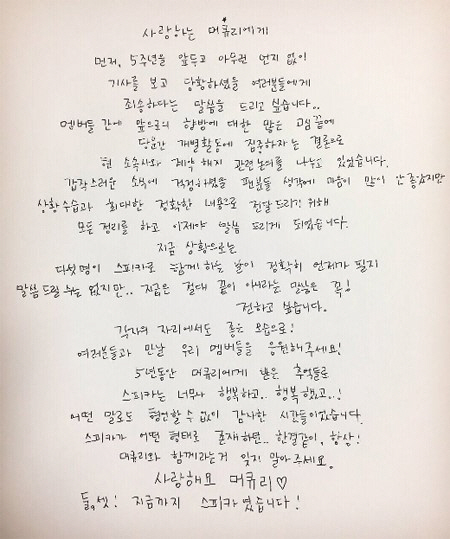 사랑하는 머큐리에게
먼저, 5주년을 앞두고 아무런 언지 없이
기사를 보고 당황하셨을 여러분들에게
죄송하다는 말씀을 드리고 싶습니다..
멤버들 간에 앞으로의 향방에 대한 많은 고심 끝에
당분간 개별활동에 집중하자는 결론으로
현 소속사와 계약 해지 관련 논의를 나누고 있었습니다.
갑작스러운 소식에 걱정하셨을 팬분들 생각에 마음이 많이 안 좋았지만
상황수습과 최대한 정확한 내용으로 전달드리기 위해
모든 정리를 하고 이제야 말씀 드리게 되었습니다.
지금 상황으로는
다섯명이 스피카로 함께 하는 날이 정확히 언제가 될지
말씀 드릴 수는 없지만.. 지금은 절대 끝이 아니라는 말씀은 꼭!
전하고 싶습니다.
각자의 자리에서도 좋은 모습으로!
여러분들과 만날 우리 멤버들을 응원해주세요!
5년동안 머큐리에게 받은 추억들로
스피카는 너무나 행복하고.. 행복했고..!
어떤 말로도 형언할 수 없이 감사한 시간들이었습니다.
스피카가 어떤 형태로 존재하던.. 한결같이, 항상!
머큐리와 함께라는거 잊지 말아주세요.
사랑해요 머큐리♡
둘, 셋! 지금까지 스피카였습니다!